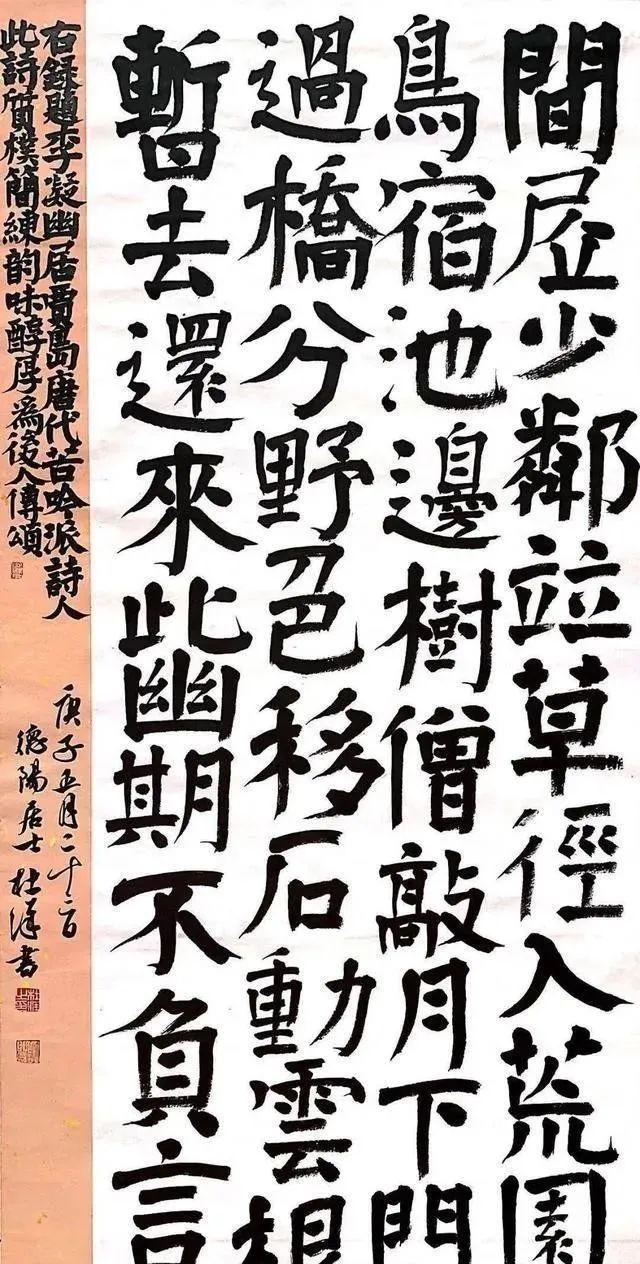 閒居少鄰竝草徑入荒園
鳥宿池邊樹僧敲月下門
過橋分野色移石動雲根
暫去還來此幽期不負言
右錄題李凝幽居賈島唐代苦吟派詩人
此詩質樸簡練韵味醇厚為後人傳頌
庚子五月二十二日
德陽居士杜洋書